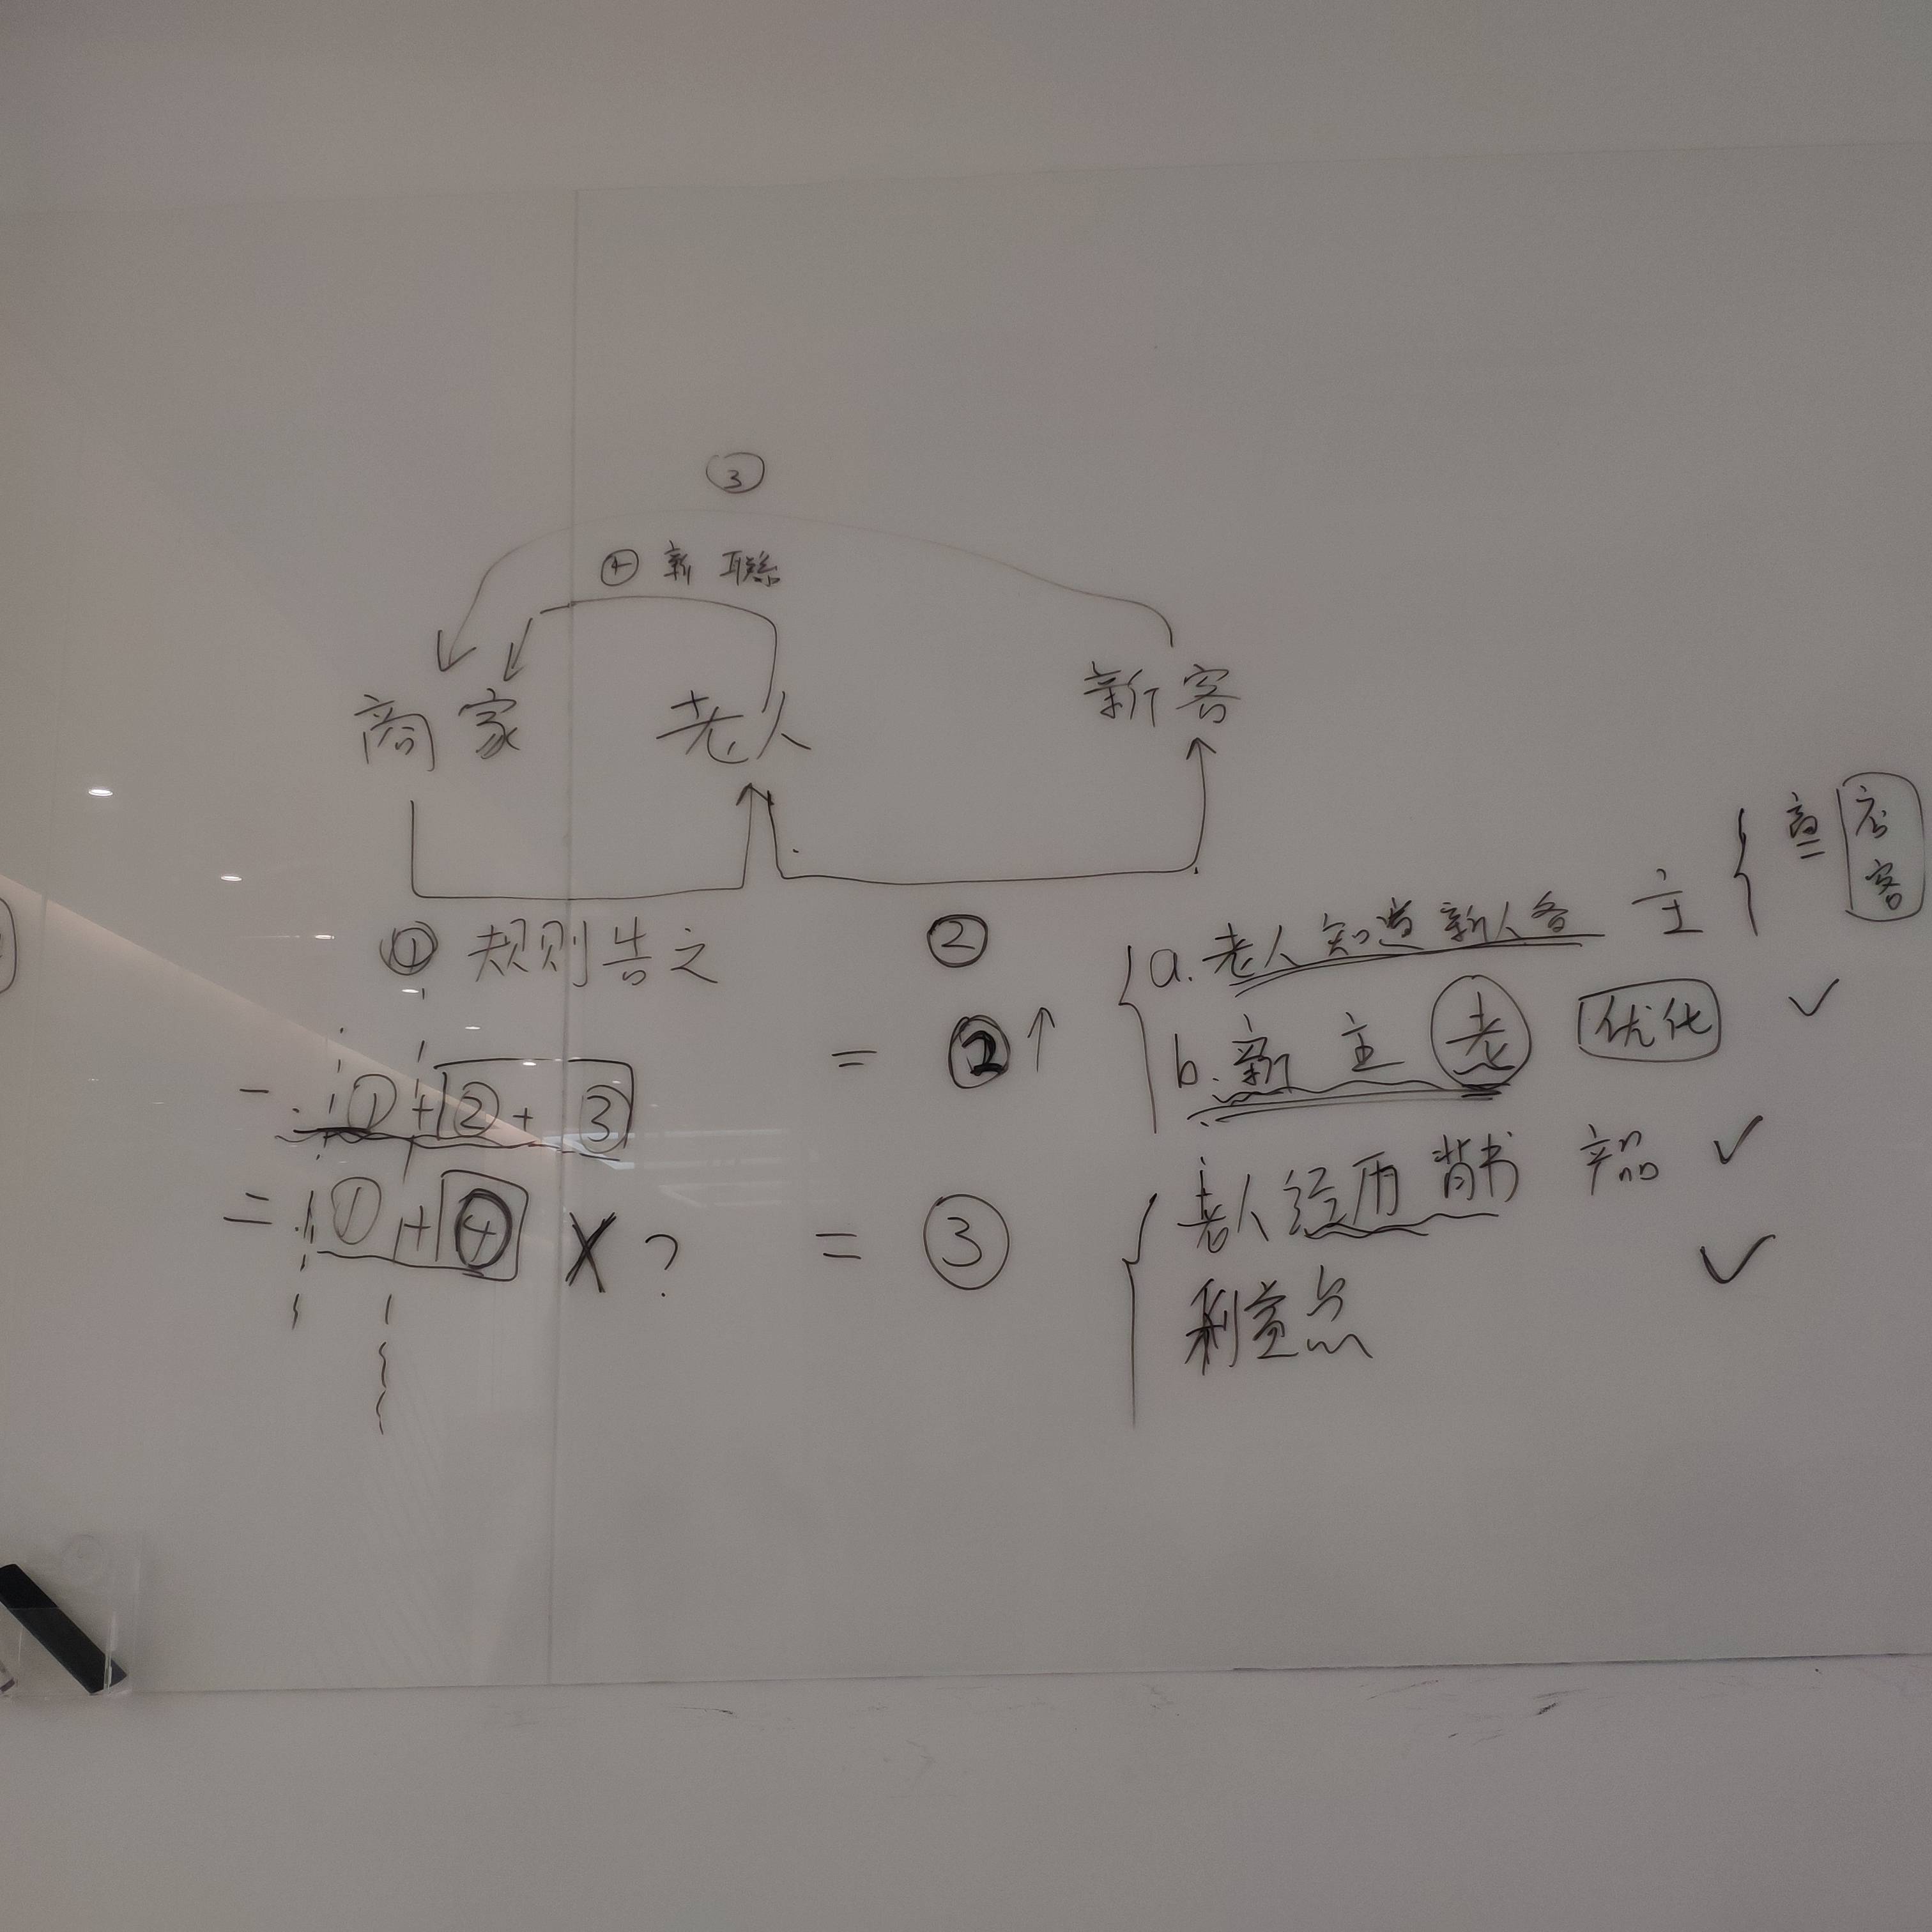 ③
④ 新 联系
商家 老人 新客
① 规则告之
②
a. 老人知道新人备 主
店
客
b. 新 主 老 优化 ✓
一. ①+②+③ = ②↑
二. ①+④ X ? = ③
老人经历背书 ✓
利益点 ✓